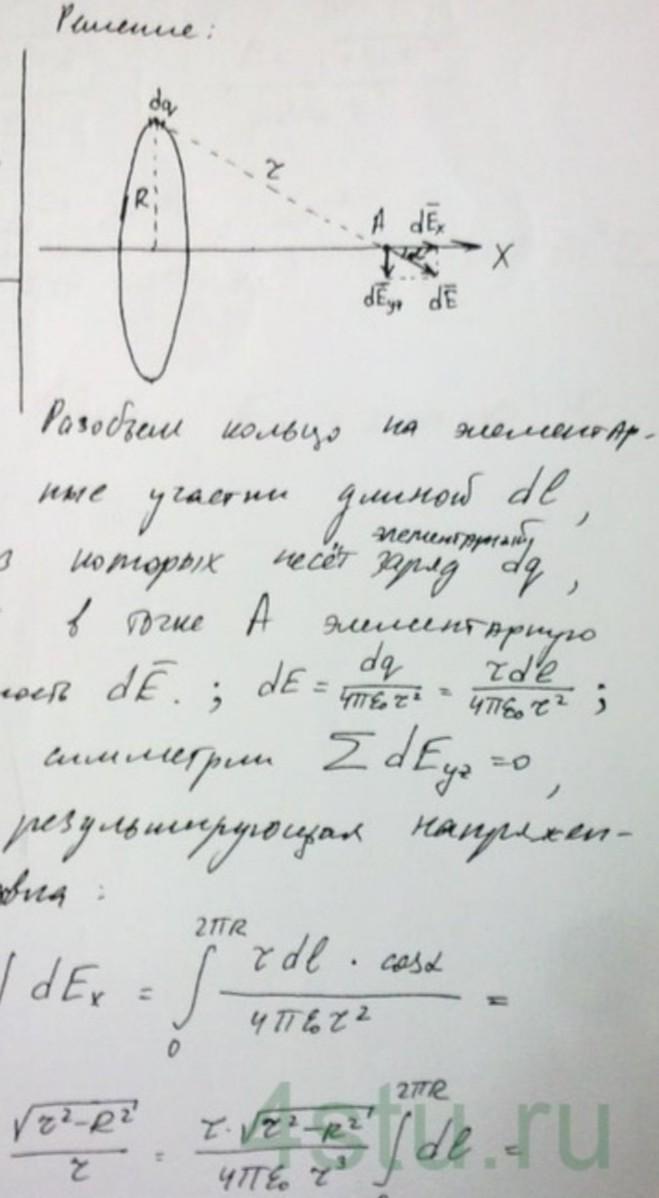 Решение:
dq
R
r
A dĒx
X
dĒyz dĒ
Разобьем кольцо на элементар-
ные участки длиной dl,
элементарный
которых несёт заряд dq,
в точке A элементарную
ность dĒ. ; dE = dq/4πε₀r² = τdl/4πε₀r² ;
симметрии ∑ dEyz = 0,
результирующая напряжен-
вна :
∫ dEx = ∫₀^2πR τdl · cosα / 4πε₀r² =
√(r²-R²)/r = τ·√(r²-R²)/4πε₀ r³ ∫^2πR dl =
4stu.ru